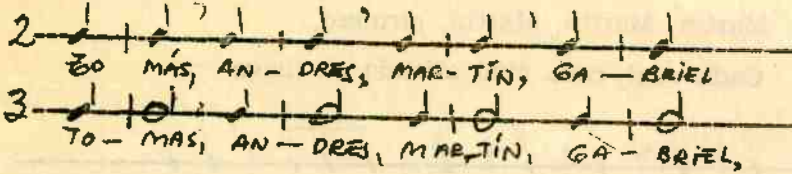 2
TO MÁS, AN-DRES, MAR-TÍN, GA-BRIEL
3
TO-MAS, AN-DRES, MAR-TÍN, GA-BRIEL,